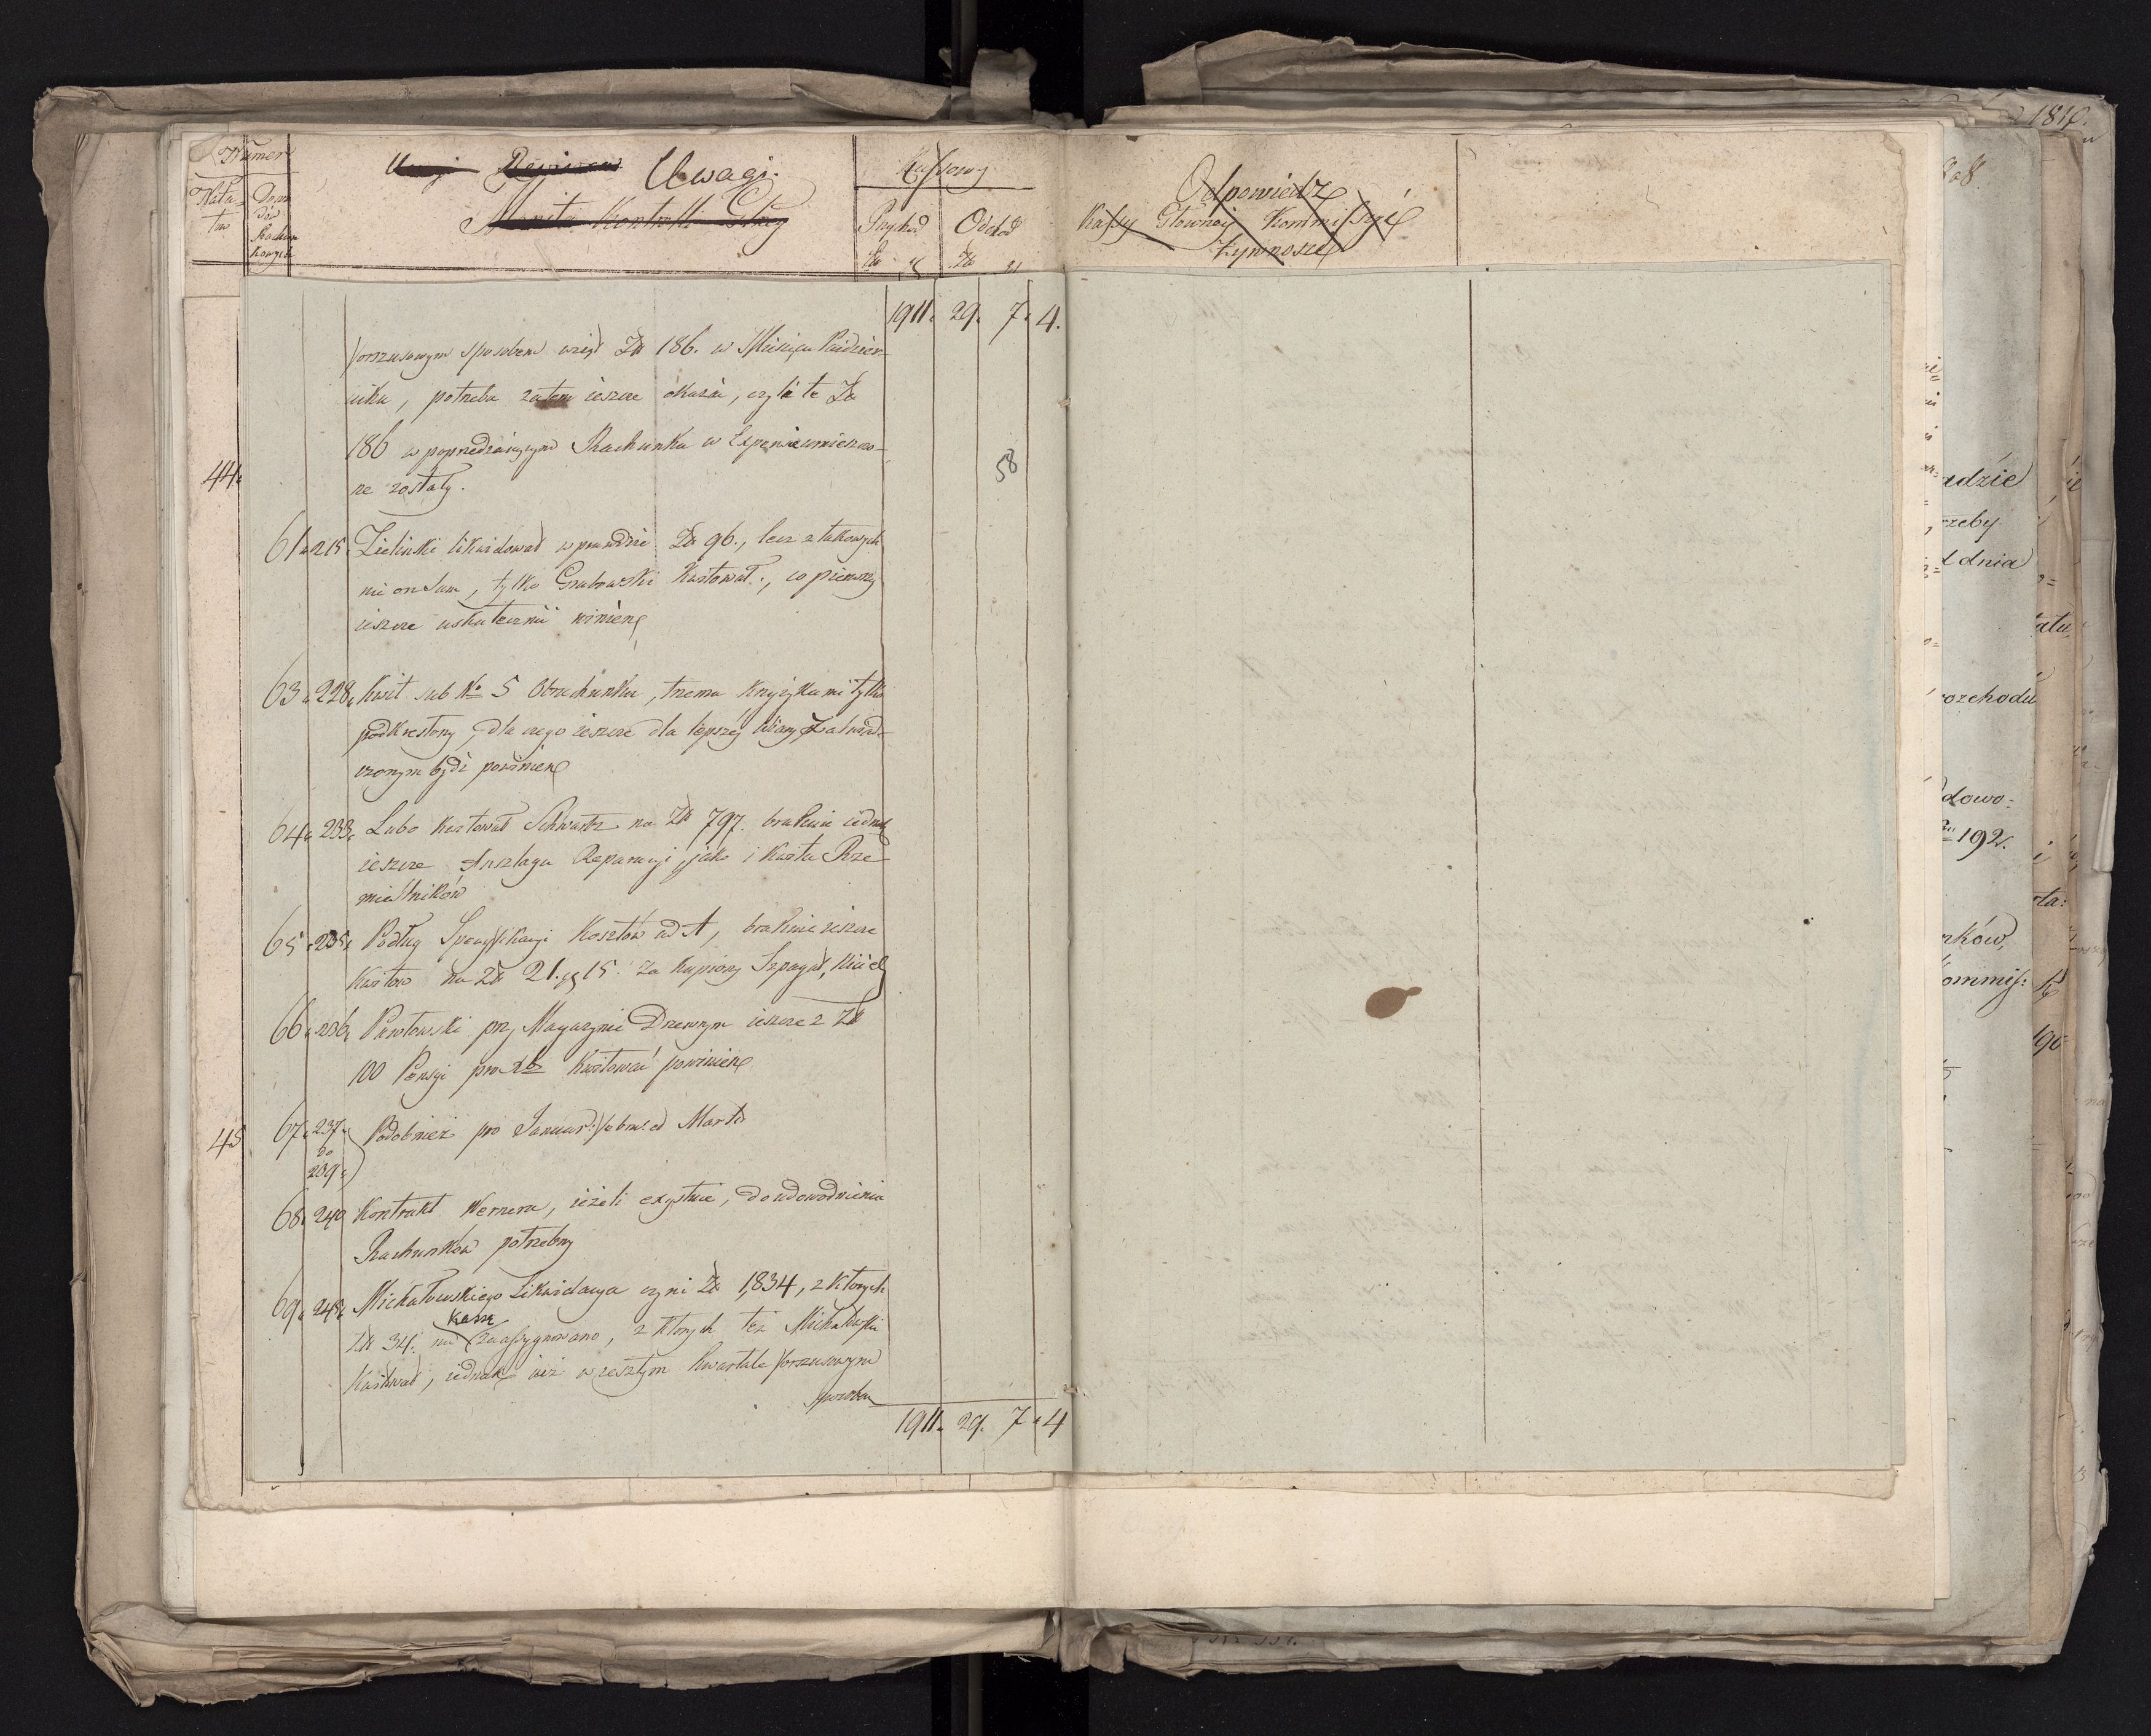 Numer
Uwagi.
Kassowy
Nata
tu
Dowo
dów
Rachun
kowych
Przychod
Odchod
Zł
gr
Zł
gr
Odpowiedz
Kassy Głowney Kommissyi
Żywnosci
1911. 29. 7. 4.
forszusowym sposobem wziął Zł 186. w Miesiącu Paidzier-
nika, potrzeba zatem ieszcze okazać, czyli te Zł
186 w poprzedzaiącym Rachunku w Expensie umieszczo-
ne zostały.
44.
58
61. 215. Zielinski likwidował wprawdzie Zł 96., lecz z takowych
nie on sam, tylko Grabowski kwitował., co pierwszy
ieszcze uskutecznić winien
63. 228. Kwit sub No 5 Obrachunku, trzema krzyżykami tylko
podkreslony, dla czego ieszcze dla lepszey wiary zaswiad-
czonym bydź powinien
64. 233. Lubo kwitował Schwartz na Zł 797. brakuie iednak
ieszcze Anszlagu Reparacyi, jako i kwitu Rze-
miesłników
65. 235. Podług Specyfikacyi kosztów ad A, brakuie ieszcze
kwitow na Zł 21. gr 15. za kupiony Szpagat, kiiel
66. 236. Pawłowski przy Magazynie Drzewnym ieszcze z Zł
100 Pensyi pro Xb kwitować powinien
45
67. 237. Podobnież pro Januar: Febru: et Martio
do
239.
68. 240 Kontrakt Wernera, ieżeli exystuie, do udowodnienia
Rachunków potrzebny
69. 248. Michałowskiego Likwidacya czyni Zł 1,834, z których
Kassę
Zł 34. na zaassygnowano, z których też Michałowski
kwitował, iednak iuż w zeszłym kwartale forszusowym
sposobem
1911. 29. 7. 4
181
adzie
rzeby
d dnia
atu
rozchodu
dowo=
192.
rków,
ommis:
190